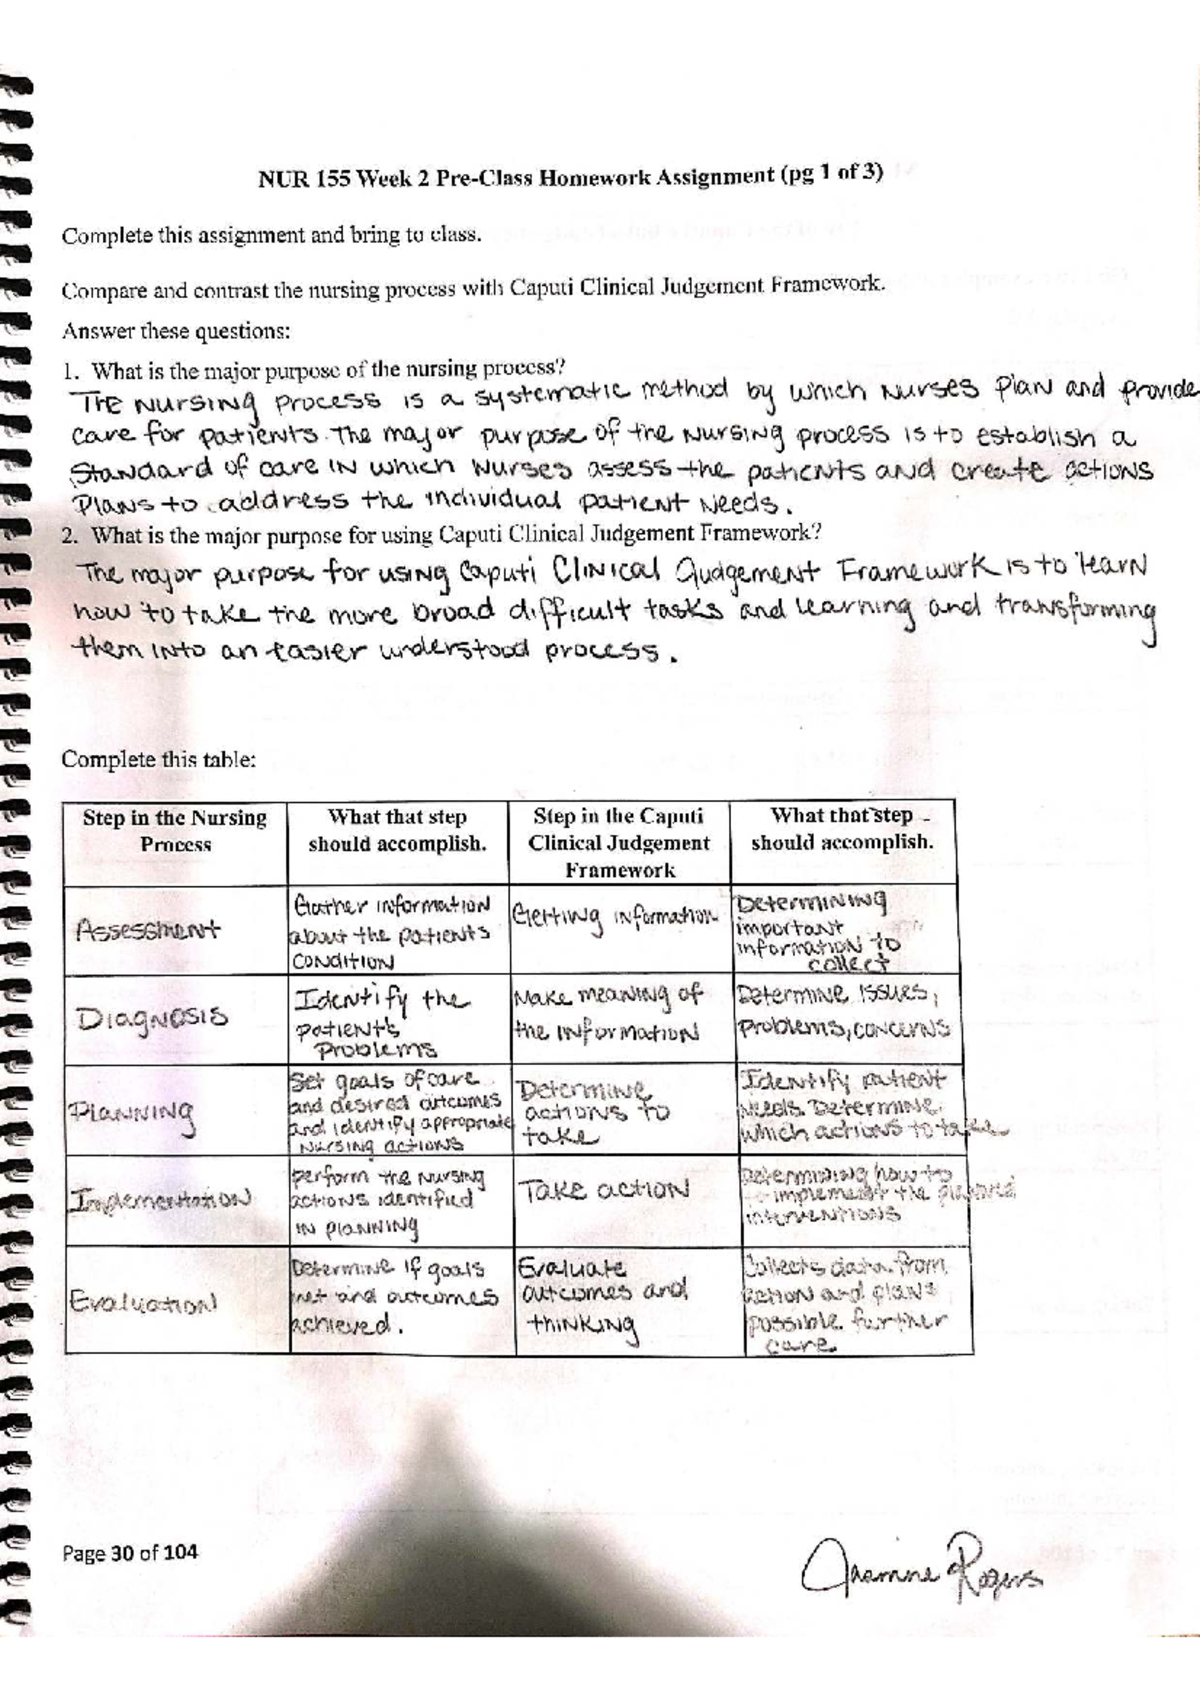 NUR 155 Week 2 Pre-Class Homework Assignment (pg 1 of 3)
Complete this assignment and bring to class.
Compare and contrast the nursing process with Caputi Clinical Judgement Framework.
Answer these questions:
1. What is the major purpose of the nursing process?
The Nursing process is a systematic method by which Nurses plan and provide
care for patients. The major purpose of the Nursing process is to establish a
standard of care in which Nurses assess the patients and create actions
plans to address the individual patient needs.
2. What is the major purpose for using Caputi Clinical Judgement Framework?
The major purpose for using Caputi Clinical Judgement Framework is to learn
how to take the more broad difficult tasks and learning and transforming
them into an easier understood process.
Complete this table:
Step in the Nursing
Process
What that step
should accomplish.
Step in the Caputi
Clinical Judgement
Framework
What that step
should accomplish.
Assessment
Gather information
about the patients
condition
Getting information
Determining
important
information to
collect
Diagnosis
Identify the
patient's
problems
Make meaning of
the information
Determine issues,
problems, concerns
Planning
Set goals of care
and desired outcomes
and identify appropriate
Nursing actions
Determine
actions to
take
Identify patient
needs. Determine
which actions to take
Implementation
perform the nursing
actions identified
in planning
Take action
Determining how to
implement the planned
interventions
Evaluation
Determine if goals
met and outcomes
achieved.
Evaluate
outcomes and
thinking
Collects data from
action and plans
possible further
care
Page 30 of 104
Jasmine Rogers